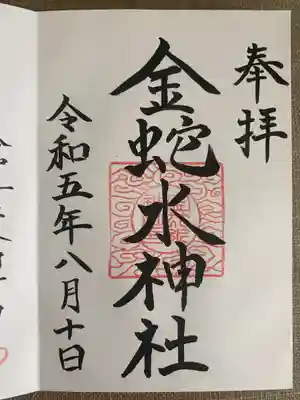 奉拝
金蛇水神社
令和五年八月十日